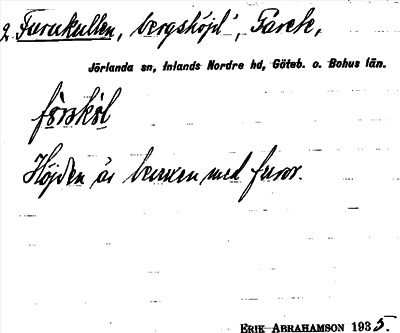 2. Furukullen, 'bergshöjd', Tareh,
Jörlanda sn, Inlands Nordre hd, Göteb. o. Bohus län.
Höjden är bevuxen med furor.
ERIK ABRAHAMSON 1935.